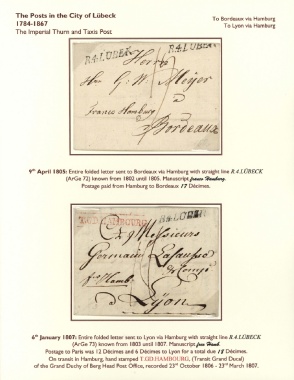 The Posts in the City of Lübeck
1784-1867
The Imperial Thurn and Taxis Post
To Bordeaux via Hamburg
To Lyon via Hamburg
R.4.LÜBECK
R.4.LÜBECK
Herrn
Hrn G. W. Meyer
franco Hamburg
Bordeaux
9th April 1805: Entire folded letter sent to Bordeaux via Hamburg with straight line R.4.LÜBECK
(ArGe 72) known from 1802 until 1805. Manuscript franco Hamburg.
Postage paid from Hamburg to Bordeaux 17 Décimes.
T.G.D.HAMBOURG
R.4.LÜBECK
Messieurs
Germain
Lyon
6th January 1807: Entire folded letter sent to Lyon via Hamburg with straight line R.4.LÜBECK
(ArGe 73) known from 1803 until 1807. Manuscript fco Hamb.
Postage to Paris was 12 Décimes and 6 Décimes to Lyon for a total due 18 Décimes.
On transit in Hamburg, hand stamped T.GD.HAMBOURG, (Transit Grand Ducal)
of the Grand Duchy of Berg Head Post Office, recorded 23rd October 1806 - 23rd March 1807.